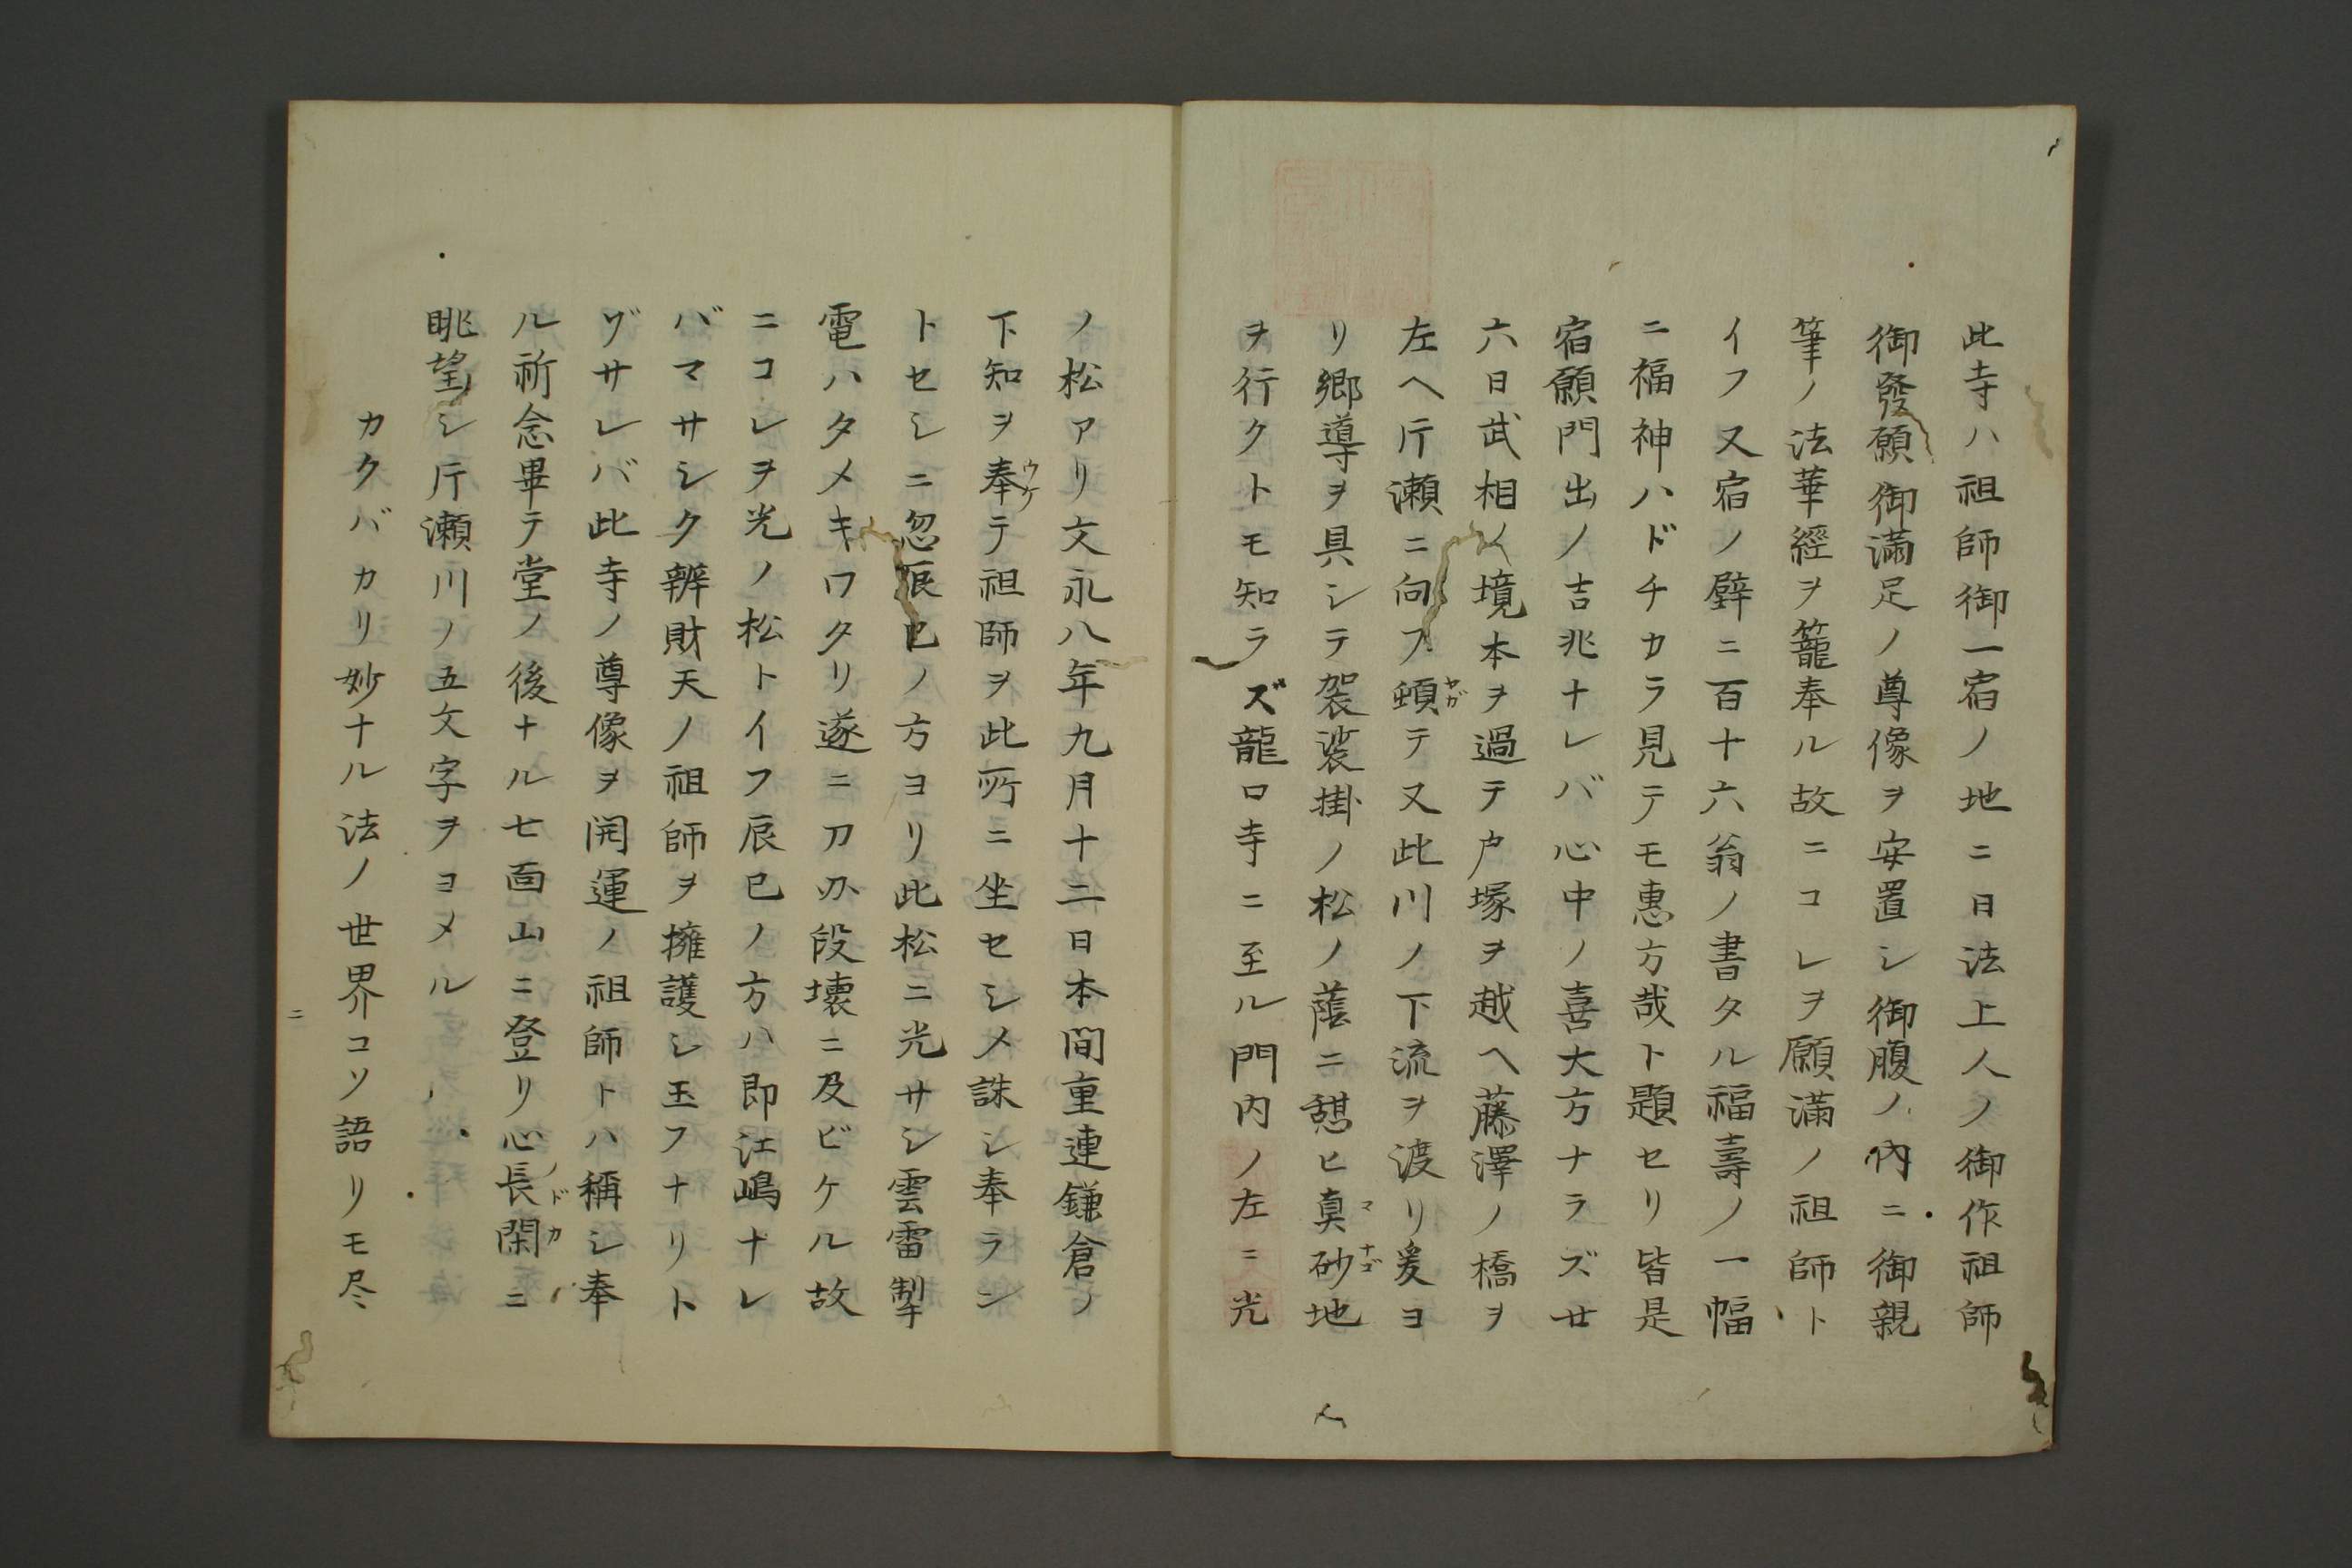 此寺ハ祖師御一宿ノ地ニ日法上人ノ御作祖師
御發願御滿足ノ尊像ヲ安置シ御腹ノ內ニ御親
筆ノ法華經ヲ籠奉ル故ニコレヲ願滿ノ祖師ト
イフ又宿ノ壁ニ百十六翁ノ書タル福壽ノ一幅
ニ福神ハドチカラ見テモ惠方哉ト題セリ皆是
宿願門出ノ吉兆ナレバ心中ノ喜大方ナラズ廿
六日武相ノ境本ヲ過テ戸塚ヲ越ヘ藤澤ノ橋ヲ
左ヘ片瀬ニ向フ頓テ又此川ノ下流ヲ渡リ爰ヨ
リ郷導ヲ具シテ袈裟掛ノ松ノ蔭ニ憩ヒ真砂地
ヲ行クトモ知ラズ龍口寺ニ至ル門内ノ左ニ光
ノ松アリ文永八年九月十二日本間重連鎌倉ノ
下知ヲ奉テ祖師ヲ此所ニ坐セシメ誅シ奉ラン
トセシニ忽辰巳ノ方ヨリ此松ニ光サシ雲雷掣
電ハタメキワタリ遂ニ刀刃段壊ニ及ビケル故
ニコレヲ光ノ松トイフ辰巳ノ方ハ即江嶋ナレ
バマサシク辨財天ノ祖師ヲ擁護シ玉フナリト
ゾサレバ此寺ノ尊像ヲ開運ノ祖師トハ稱シ奉
ル祈念畢テ堂ノ後ナル七面山ニ登リ心長閑ニ
眺望シ片瀬川ノ五文字ヲヨメル
カクバカリ妙ナル法ノ世界コソ語リモ尽